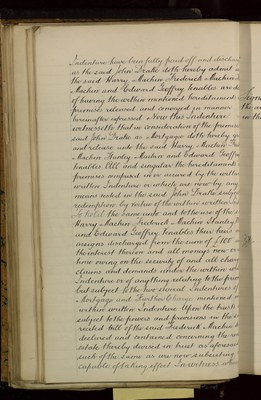 Indenture have been fully paid off and discharged
as the said John Drake doth hereby admit
the said Harry Machin Frederick Machin
Machin and Edward Geoffry Knables are
of having the within mentioned hereditaments
premises released and conveyed in manner
hereinafter expressed Now this Indenture
witnesseth that in consideration of the premises
said John Drake as Mortgagee doth hereby
and release unto the said Harry Machin
Machin Stanley Machin and Edward Geoffry
Knables All and singular the hereditaments
premises comprised in or assured by the within
written Indenture or which are now by any
means vested in the said John Drake subject
redemption by virtue of the within written
To hold the same unto and to the use of the said
Harry Machin Frederick Machin Stanley
and Edward Geoffry Knables their heirs
assigns discharged from the sum of
the interest thereon and all moneys now
hence owing on the security of and all
claims and demands under the within
Indenture or of anything relating to the
but subject to the two several Indentures of
Mortgage and Further Charge mentioned
within written Indenture Upon the trusts
subject to the powers and provisions in the
recited Will of the said Frederick Machin
declared and contained concerning the
estate thereby devised in trust as aforesaid
such of the same as are now subsisting
capable of taking effect In witness